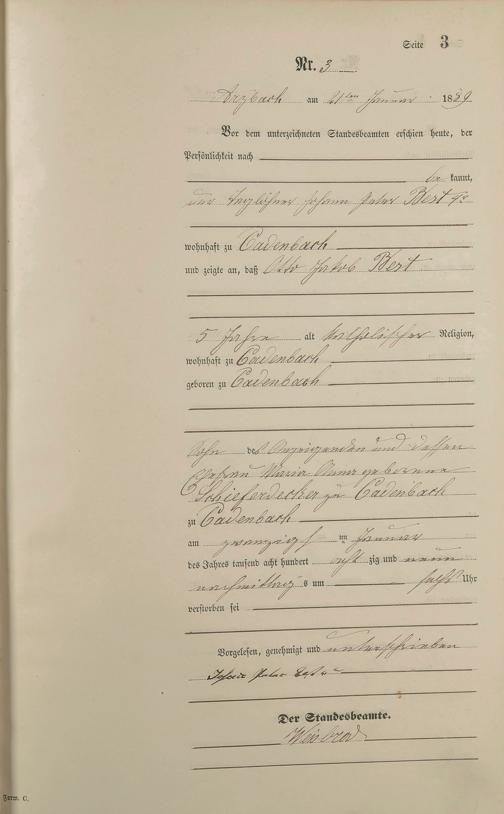 Seite 3
Nr. 3
Arzbach am 21ten Januar 1889
Vor dem unterzeichneten Standesbeamten erschien heute, der
Persönlichkeit nach
be kannt,
der Taglöhner Johann Peter Bert
wohnhaft zu Cadenbach
und zeigte an, daß Otto Jakob Bert
5 Jahre alt katholischer Religion,
wohnhaft zu Cadenbach
geboren zu Cadenbach
Sohn des Anzeigenden und dessen
Ehefrau Maria Anna geborene
Schieferdecker zu Cadenbach
zu Cadenbach
am zwanzigst en Januar
des Jahres tausend acht hundert acht zig und neun
nachmittags um Uhr
verstorben sei
Vorgelesen, genehmigt und unterschrieben
Johann Peter
Der Standesbeamte.
Weisbrod
Form. C.